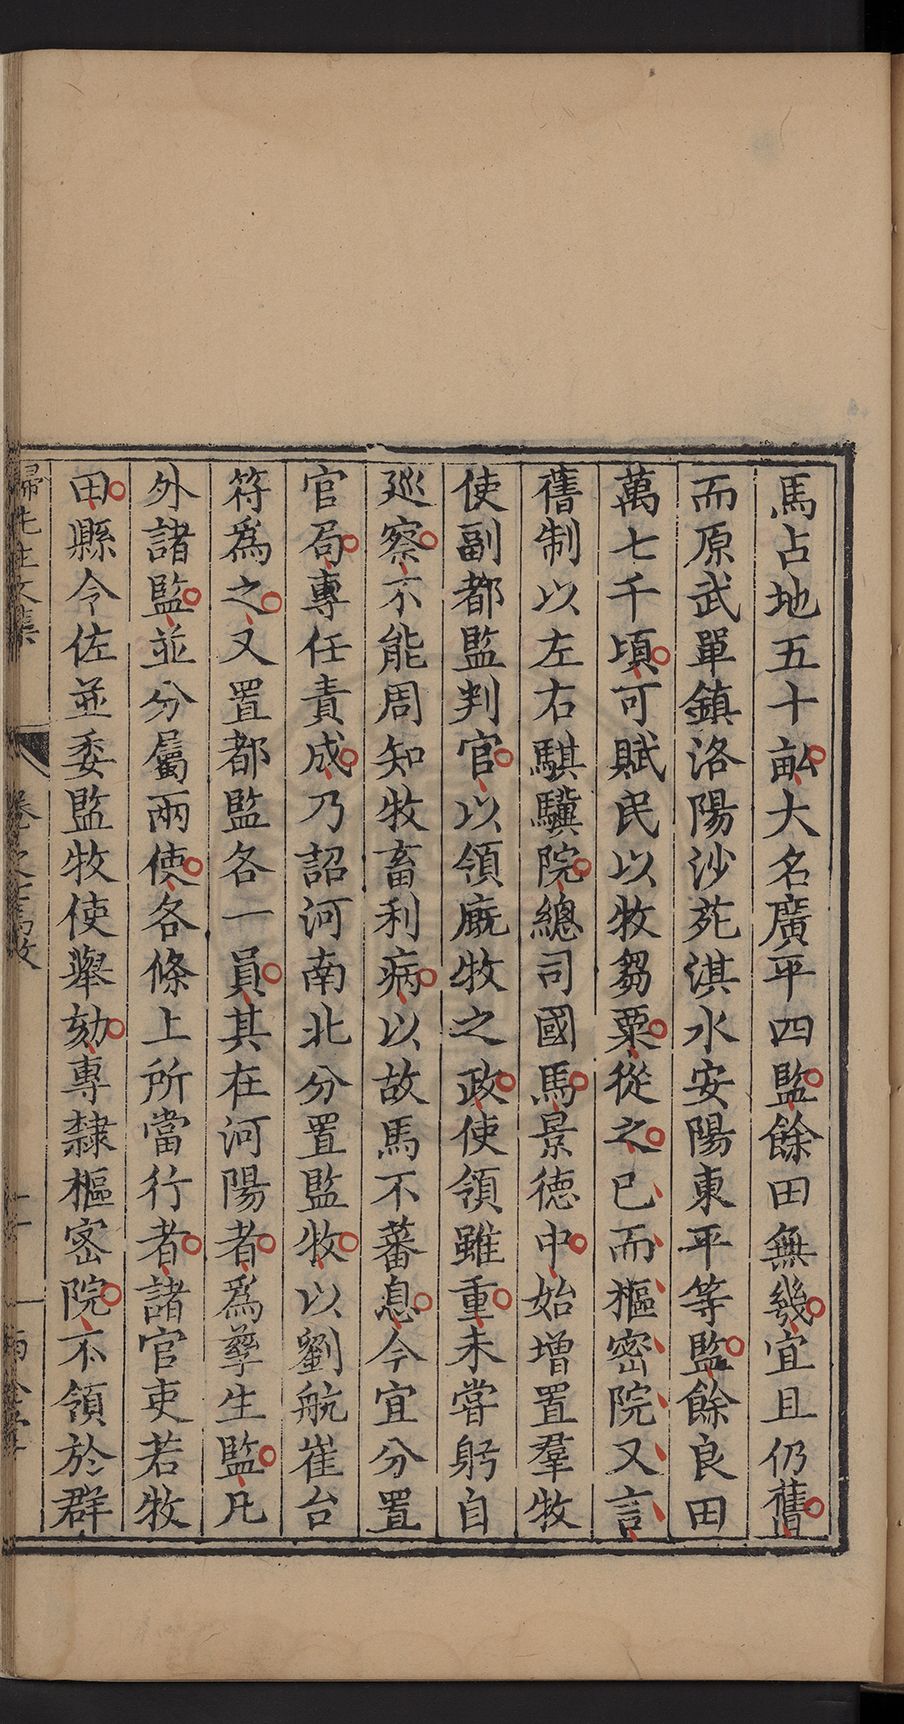 馬占地五十畝大名廣平四監餘田無幾宜且仍舊
而原武單鎮洛陽沙苑淇水安陽東平等監餘良田
萬七千頃可賦民以牧芻粟從之已而樞密院又言
舊制以左右騏驥院總司國馬景德中始增置羣牧
使副都監判官以領廐牧之政使領雖重未嘗躬自
廵察不能周知牧畜利病以故馬不蕃息今宜分置
官局專任責成乃詔河南北分置監牧以劉航崔台
符爲之又置都監各一員其在河陽者爲孳生監凡
外諸監並分屬兩使各條上所當行者諸官吏若牧
田縣令佐並委監牧使舉劾專隸樞密院不領於群